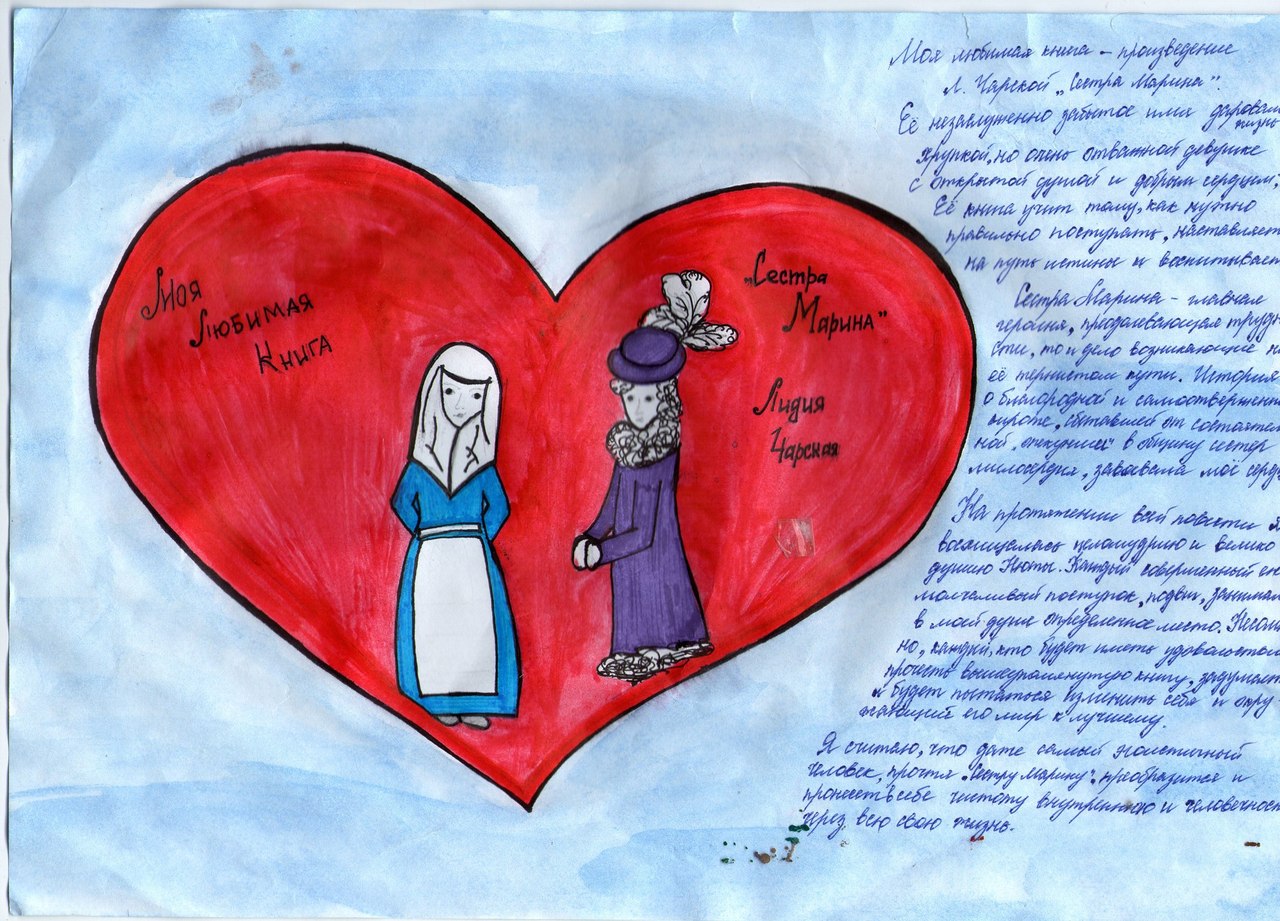 Моя
Любимая
Книга
„Сестра
Марина"
Лидия
Чарская
Моя любимая книга – произведение
Л. Чарской „Сестра Марина".
Её незаслуженно забытое имя даровал
жизнь
хрупкой, но очень отважной девушке
с открытой душой и добрым сердцем,
Её книга учит тому, как нужно
правильно поступать, наставляет
на путь истины и воспитывает
Сестра Марина – главная
героиня, преодолевающая трудн
сти, то и дело возникающие н
её тернистом пути. История
о благородной и самоотверженн
сироте, сбежавшей от состоятел
ной „опекунши" в общину сестер
милосердия, завоевала моё серд
На протяжении всей повести я
восхищалась целомудрию и велико
душию Нюты. Каждый совершенный ею
молчаливый поступок, подвиг, занимал
в моей душе определенное место. Несомн
но, каждый, кто будет иметь удовольствие
прочесть вышеупомянутую книгу, задумает
и будет пытаться изменить себя и окру
жающий его мир к лучшему.
Я считаю, что даже самый эгоистичный
человек, прочтя „Сестру Марину", преобразится и
пронесет в себе чистоту внутреннюю и человечност
через всю свою жизнь.